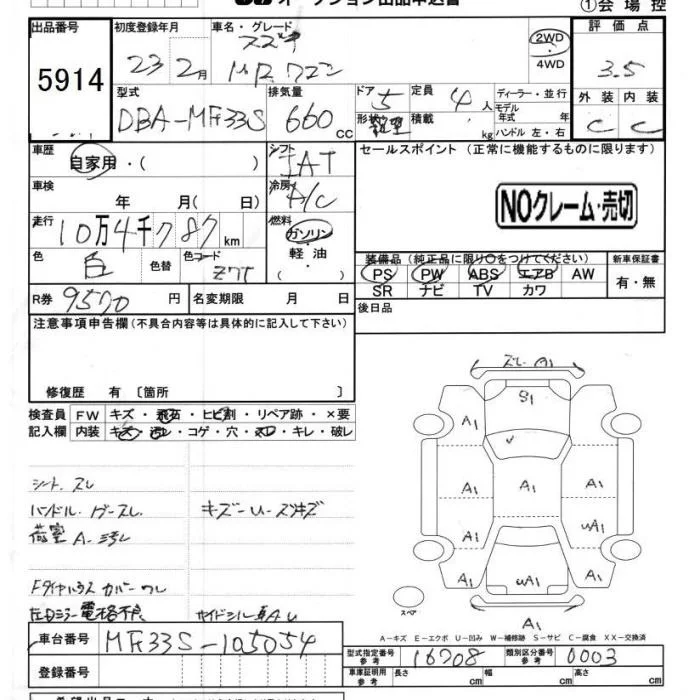 オークション出品申込書
①会場控
出品番号 5914
初度登録年月 23年2月
車名・グレード スズキ MRワゴン
2WD・4WD
評価点 3.5
型式 DBA-MF33S
排気量 660cc
ドア 5 形状
定員 4人 積載 kg
ディーラー・並行
モデル年式 年
ハンドル 左・右
外装 C 内装 C
車歴 自家用・( )
シフト IAT
セールスポイント (正常に機能するものに限ります)
車検 年 月( 日)
冷房 A/C
NOクレーム・売切
走行 10万4千787km
燃料 ガソリン・軽油・( )
色 色替 色コード Z7T
装備品 (純正品に限り○をつけてください)
新車保証書
PS PW ABS エアB AW
有・無
SR ナビ TV カワ
R券 9570円
名変期限 月 日
後日品
注意事項申告欄(不具合内容等は具体的に記入して下さい)
修復歴 有 〔箇所 〕
検査員 FW キズ・飛石・ヒビ割・リペア跡・×要
記入欄 内装 キズ・汚レ・コゲ・穴・スレ・キレ・破レ
スレ A1
S1
A1 A1
A1 A1 A1
A1 A1 uA1
A1 uA1 A1
スペア
A1
シート スレ
ハンドル ゲースレ キズーU-スリキズ
荷室 A-汚レ
カバー ワレ
左Dミラー電格不良 サイドシル A U
A-キズ E-エクボ U-凹み W-補修跡 S-サビ C-腐食 XX-交換済
車台番号 MF33S-105054
型式指定番号 参考 16708
類別区分番号 参考 0003
登録番号
車庫証明用 参考 長さ cm 幅 cm 高さ cm